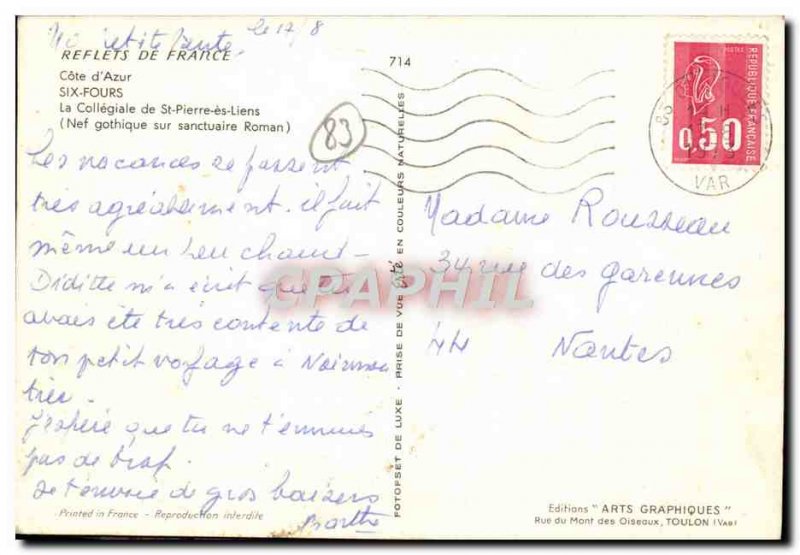 Ma petite Tante, le 17/8
REFLETS DE FRANCE
Côte d'Azur
SIX-FOURS
La Collégiale de St-Pierre-ès-Liens
(Nef gothique sur sanctuaire Roman)
714
83
Les vacances se passent
très agréablement. il fait
même un peu chaud -
Diditte m'a écrit que tu
avais été très contente de
ton petit voyage à Noirmou
tier.
J'espère que tu ne t'ennuies
pas de trop.
Je t'envoie de gros baisers
Printed in France - Reproduction interdite
FOTOFSET DE LUXE - PRISE DE VUE EN COULEURS NATURELLES
CPAPHIL
POSTES
REPUBLIQUE FRANÇAISE
0,50
VAR
Madame Rousseau
34 rue des garennes
44 Nantes
Editions "ARTS GRAPHIQUES"
Rue du Mont des Oiseaux, TOULON (VAR)